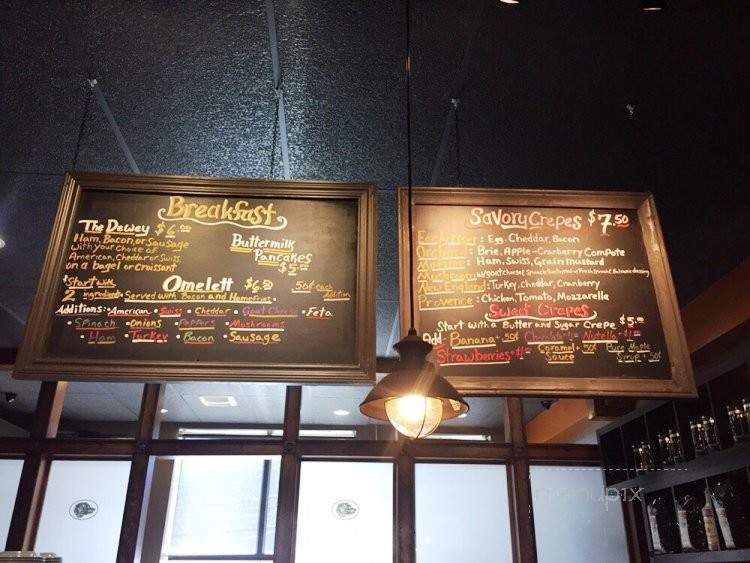 Breakfast
The Dewey $6.00
Ham, Bacon, or Sausage
with your choice of
American, Cheddar or Swiss
on a bagel or croissant
Buttermilk
Pancakes
$5.00
Omelett $6.50
*Start with
2 ingredients Served with Bacon and Homefries
50¢ each
Addition
Additions: American • Swiss • Cheddar • Goat Cheese • Feta
• Spinach • Onions • Peppers • Mushrooms
• Ham • Turkey • Bacon • Sausage
Savory Crepes $7.50
: Egg, Cheddar, Bacon
Orchard: Brie, Apple-Cranberry Compote
: Ham, Swiss, Grain mustard
Mushroom: w/goat cheese, Balsamic dressing
New England: Turkey, Cheddar, Cranberry
Provence: Chicken, Tomato, Mozzarella
Sweet Crepes
Start with a Butter and Sugar Crepe $5.00
Add: Banana + 50¢ Chocolate + Nutella + $1.00
Strawberries + $1 Caramel Sauce + 50¢ Pure Maple Syrup + 50¢